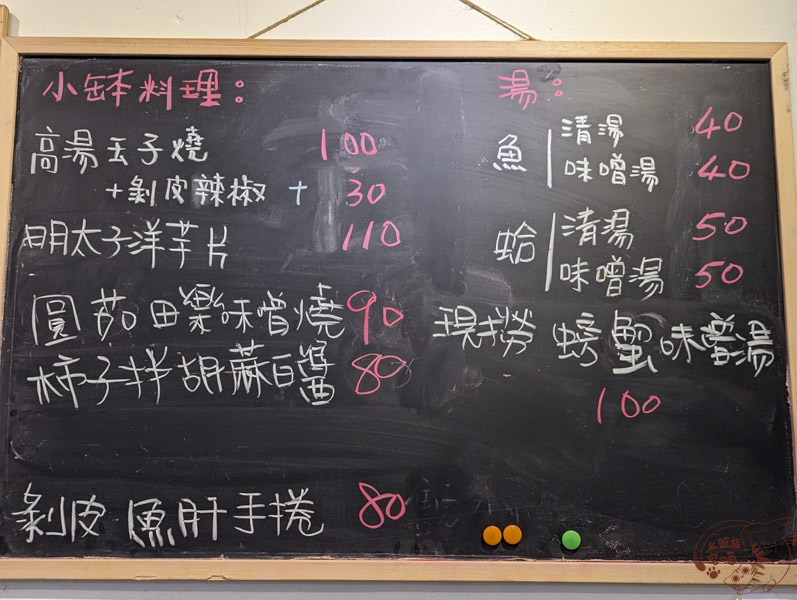 小缽料理：
高湯玉子燒 100
+剝皮辣椒 + 30
明太子洋芋片 110
圓茄田樂味噌燒 90
柿子拌胡麻白醬 80
剝皮魚肝手捲 80
湯：
魚 清湯 40
味噌湯 40
蛤 清湯 50
味噌湯 50
現撈 螃蟹味噌湯
100